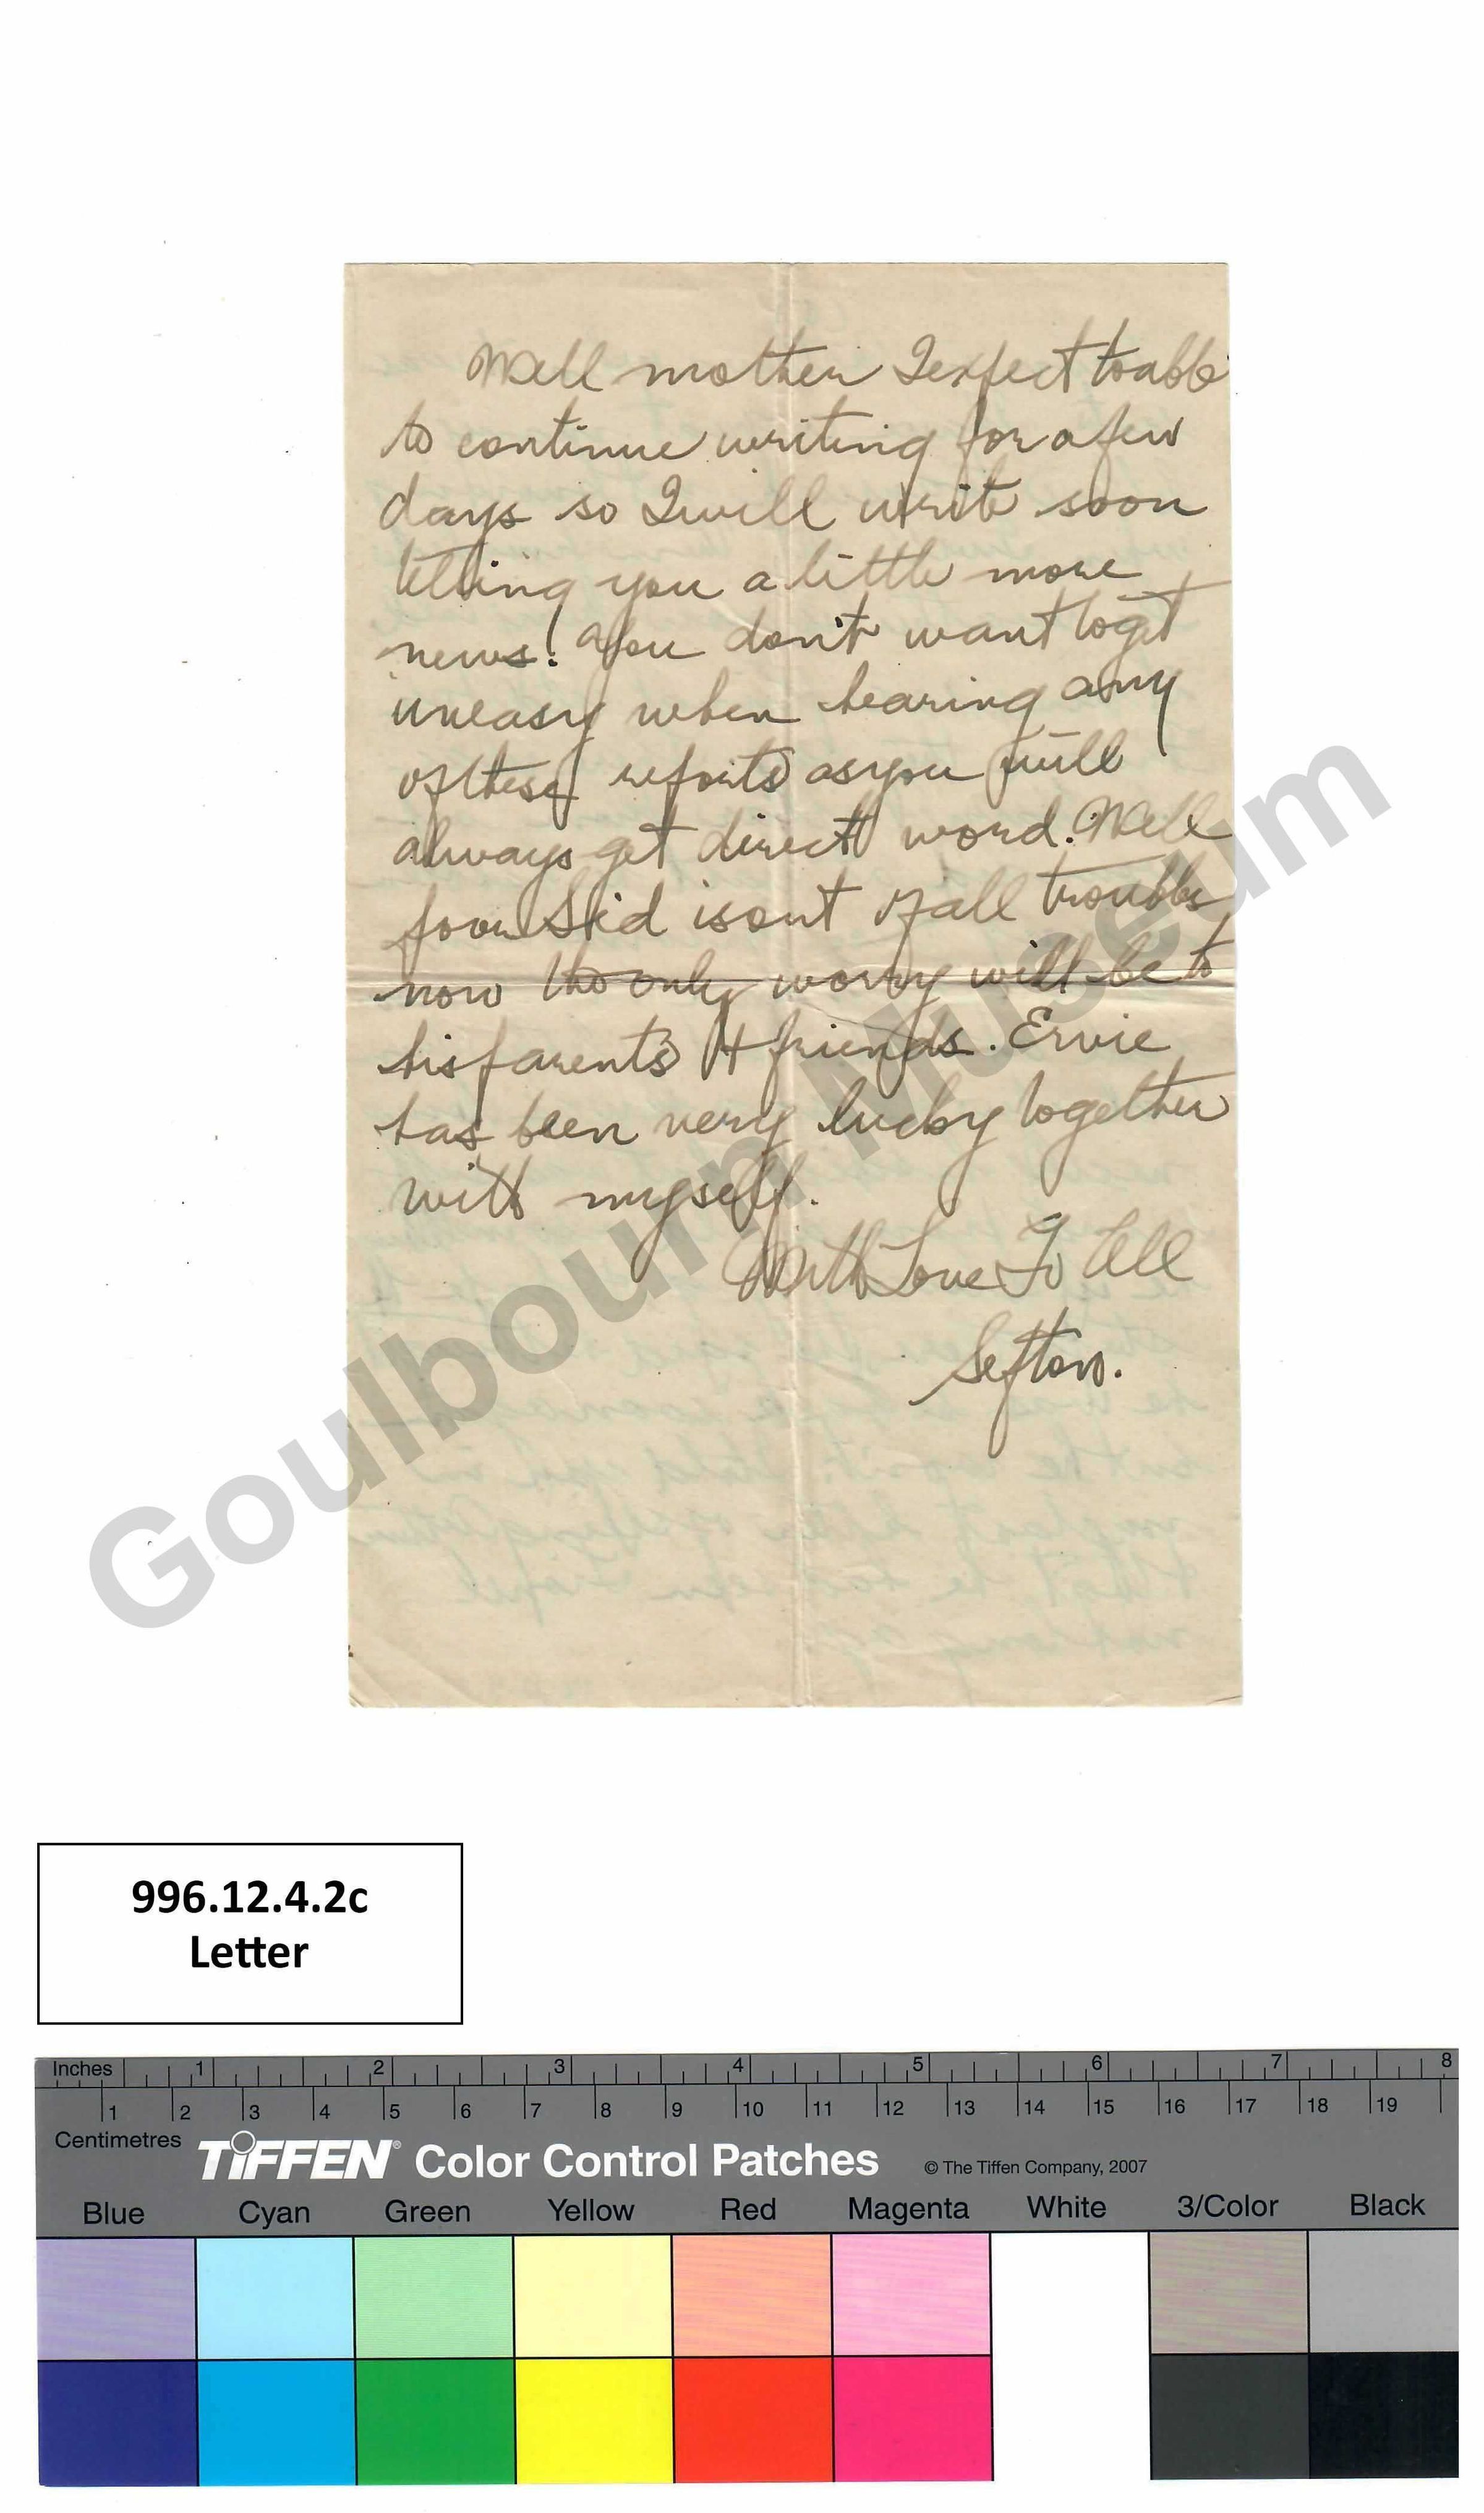 Well mother I expect to able
to continue writing for a few
days so I will write soon
telling you a little more
news. You don't want to get
uneasy when hearing any
of these reports as you will
always get direct word. Well
poor Sid is out of all troubles
now the only worry will be to
his parents + friends. Ervie
has been very lucky together
with myself.
With Love To All
Sefton.
Goulbourn Museum
996.12.4.2c
Letter
Inches 1 2 3 4 5 6 7 8
1 2 3 4 5 6 7 8 9 10 11 12 13 14 15 16 17 18 19
Centimetres
TIFFEN® Color Control Patches © The Tiffen Company, 2007
Blue Cyan Green Yellow Red Magenta White 3/Color Black